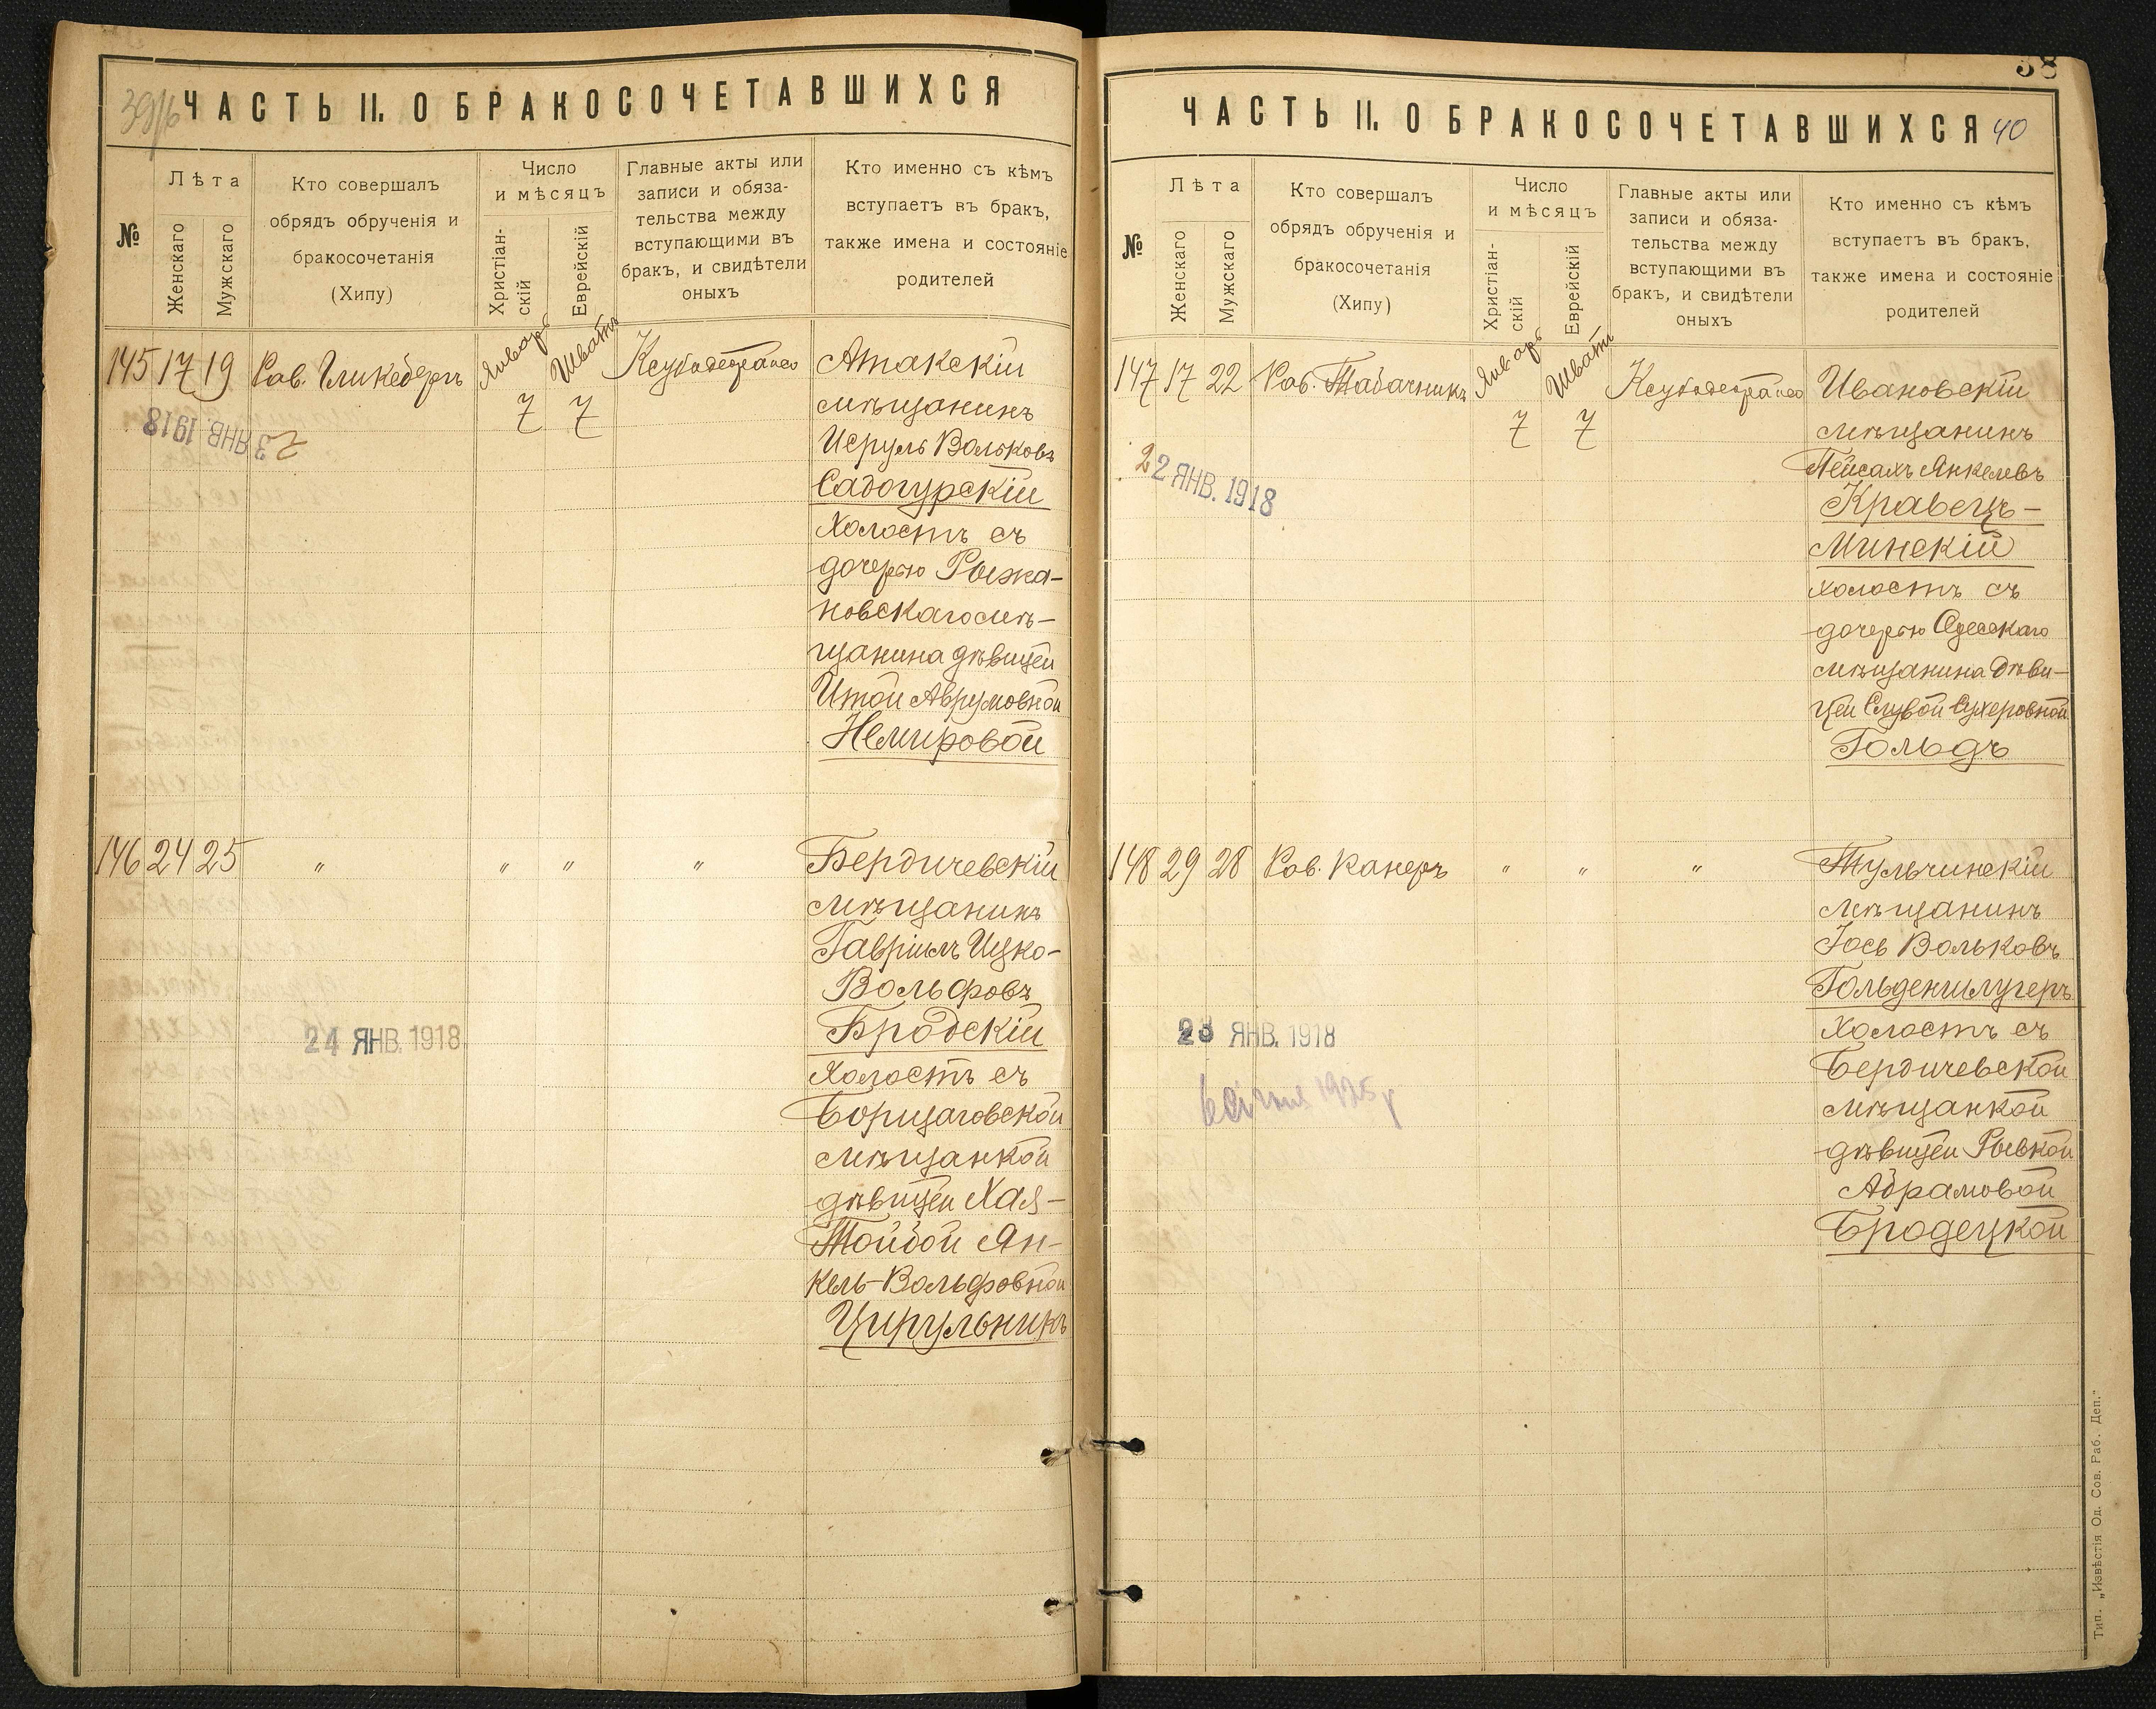 39/16
ЧАСТЬ II. О БРАКОСОЧЕТАВШИХСЯ
№
Лѣта
Женскаго
Мужскаго
Кто совершалъ
обрядъ обрученія и
бракосочетанія
(Хипу)
Число
и мѣсяцъ
Христіан-
скій
Еврейскій
Главные акты или
записи и обяза-
тельства между
вступающими въ
бракъ, и свидѣтели
оныхъ
Кто именно съ кѣмъ
вступаетъ въ бракъ,
также имена и состояніе
родителей
145 17 19 Рав. Гликбергъ Январь 7 Шватъ 7
Атакскій
мѣщанинъ
Исруль Вольковъ
Садогурскій
холостъ съ
дочерью Рыжка-
новскаго мѣ-
щанина дѣвицей
Итой Аврумовной
Немировой
3 ЯНВ. 1918
146 24 25 " " " "
Бердичевскій
мѣщанинъ
Гавріилъ Ицко-
Вольфовъ
Бродскій
холостъ съ
Борщаговской
мѣщанкой
дѣвицей Хая-
Тойбой Ян-
кель-Вольфовной
Цирульникъ
24 ЯНВ. 1918
38
ЧАСТЬ II. О БРАКОСОЧЕТАВШИХСЯ 40
№
Лѣта
Женскаго
Мужскаго
Кто совершалъ
обрядъ обрученія и
бракосочетанія
(Хипу)
Число
и мѣсяцъ
Христіан-
скій
Еврейскій
Главные акты или
записи и обяза-
тельства между
вступающими въ
бракъ, и свидѣтели
оныхъ
Кто именно съ кѣмъ
вступаетъ въ бракъ,
также имена и состояніе
родителей
147 17 22 Рав. Табачникъ Январь 7 Шватъ 7
Ивановскій
мѣщанинъ
Пейсахъ Янкелевъ
Кравецъ-
Минскій
холостъ съ
дочерью Одесскаго
мѣщанина дѣви-
цей Слувой Сухеровной
Гольдъ
22 ЯНВ. 1918
148 29 28 Рав. Канеръ " " "
Тульчинскій
мѣщанинъ
Іось Вольковъ
Гольденшлугеръ
холостъ съ
Бердичевской
мѣщанкой
дѣвицей Рывкой
Абрамовой
Бродецкой
23 ЯНВ. 1918
1925 р
Тип. „Извѣстія Од. Сов. Раб. Деп.“